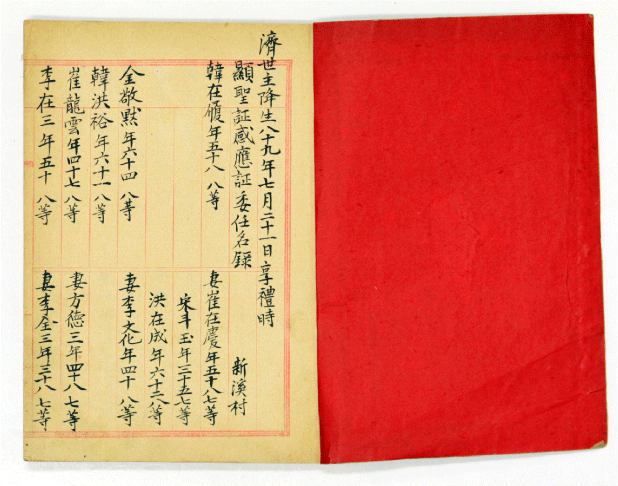 濟世主降生八十九年七月二十一日享禮時
顯聖証感應証委任名錄
新溪村
韓在履年五十八 八等
妻崔在慶年五十八七等
宋斗玉年三十五七等
洪在成年六十二八等
金敬默年六十四 八等
妻李文化年四十八 八等
韓洪裕年六十一 八等
崔龍雲年四十七 八等
妻方德三年四十八 七等
李在三年五十 八等
妻李金三年三十八 七等